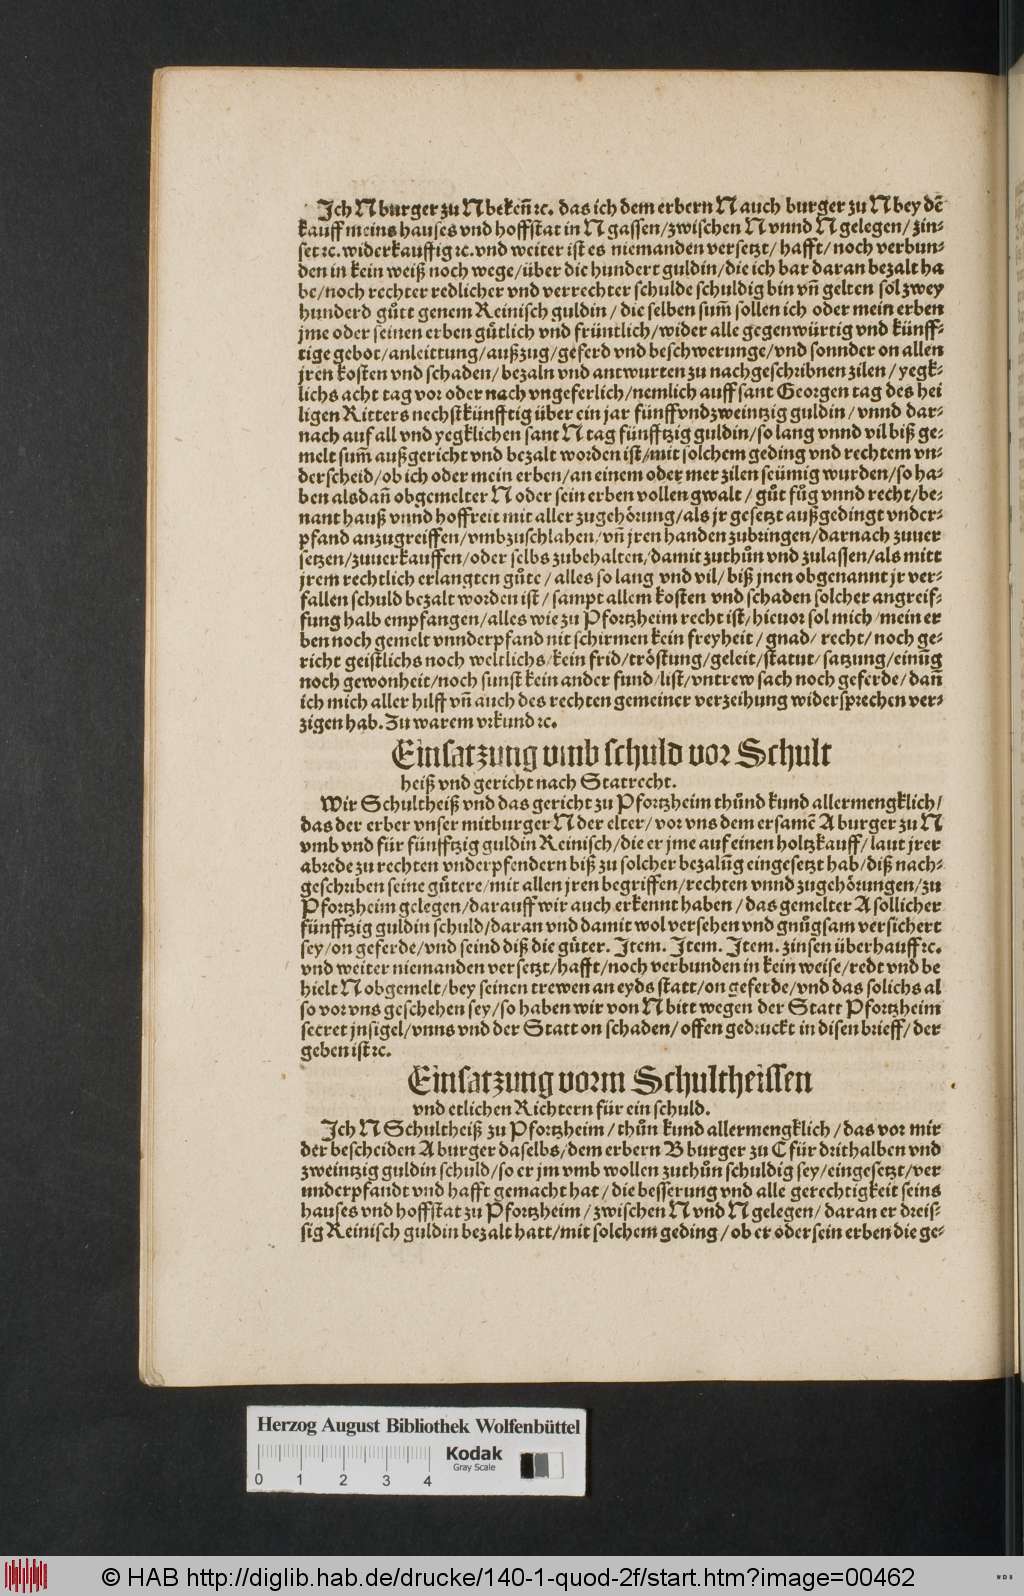 Ich N burger zu N bekeñ ꝛc. das ich dem erbern N auch burger zu N bey dē
kauff meins hauses vnd hoffstat in N gassen/zwischen N vnnd N gelegen/ zin-
set ꝛc. widerkauffig ꝛc. vnd weiter ist es niemanden versetzt/ hafft/ noch verbun-
den in kein weiß noch wege/über die hundert guldin/die ich bar daran bezalt ha
be/noch rechter redlicher vnd verrechter schulde schuldig bin vñ gelten sol zwey
hunderd gůtt genem Reinisch guldin/ die selben sum̄ sollen ich oder mein erben
jme oder seinen erben gůtlich vnd früntlich/wider alle gegenwürtig vnd künff-
tige gebot/anleittung/außzug/geferd vnd beschwerunge/vnd sonnder on allen
jren kosten vnd schaden/ bezaln vnd antwurten zu nachgeschribnen zilen/ yegk-
lichs acht tag vor oder nach vngeferlich/nemlich auff sant Georgen tag des hei
ligen Ritters nechstkünfftig über ein jar fünff vnd zweintzig guldin/ vnnd dar-
nach auf all vnd yegklichen sant N tag fünfftzig guldin/so lang vnnd vil biß ge-
melt sum̄ außgericht vnd bezalt worden ist/mit solchem geding vnd rechtem vn-
derscheid/ob ich oder mein erben/an einem oder mer zilen seümig wurden/so ha-
ben alsdañ obgemelter N oder sein erben vollen gwalt/ gůt fůg vnnd recht/be-
nant hauß vnnd hoffreit mit aller zugehörung/als jr gesetzt außgedingt vnder-
pfand anzugreiffen/vmbzuschlahen/vñ jren handen zubringen/darnach zuuer
setzen/zuuerkauffen/oder selbs zubehalten/damit zuthůn vnd zulassen/als mitt
jrem rechtlich erlangten gůte/ alles so lang vnd vil/ biß jnen obgenannt jr ver-
fallen schuld bezalt worden ist/ sampt allem kosten vnd schaden solcher angreif-
fung halb empfangen/alles wie zu Pfortzheim recht ist/hieuor sol mich/mein er
ben noch gemelt vnnderpfand nit schirmen kein freyheit/ gnad/ recht/ noch ge-
richt geistlichs noch weltlichs/kein frid/tröstung/geleit/statut/ satzung/einūg
noch gewonheit/noch sunst kein ander fund/list/vntrew sach noch geferde/dañ
ich mich aller hilff vñ auch des rechten gemeiner verzeihung widersprechen ver-
zigen hab. Zu warem vrkund ꝛc.
Einsatzung vmb schuld vor Schult
heiß vnd gericht nach Statrecht.
Wir Schultheiß vnd das gericht zu Pfortzheim thůnd kund allermengklich/
das der erber vnser mitburger N der elter/ vor vns dem ersamē A burger zu N
vmb vnd für fünfftzig guldin Reinisch/die er jme auf einen holtzkauff/laut jrer
abrede zu rechten vnderpfendern biß zu solcher bezalūg eingesetzt hab/diß nach-
geschriben seine gůtere/mit allen jren begriffen/rechten vnnd zugehörungen/zu
Pfortzheim gelegen/darauff wir auch erkennt haben/das gemelter A sollicher
fünfftzig guldin schuld/daran vnd damit wol versehen vnd gnůgsam versichert
sey/on geferde/vnd seind diß die gůter. Item. Item. Item. zinsen überhauff ꝛc.
vnd weiter niemanden versetzt/hafft/noch verbunden in kein weise/redt vnd be
hielt N obgemelt/bey seinen trewen an eyds statt/on geferde/vnd das solichs al
so vor vns geschehen sey/so haben wir von N bitt wegen der Statt Pfortzheim
secret jnsigel/vnns vnd der Statt on schaden/offen gedruckt in disen brieff/der
geben ist ꝛc.
Einsatzung vorm Schultheissen
vnd etlichen Richtern für ein schuld.
Ich N Schultheiß zu Pfortzheim/thůn kund allermengklich/das vor mir
der bescheiden A burger daselbs/dem erbern B burger zu C für drithalben vnd
zweintzig guldin schuld/so er jm vmb wollen zuthůn schuldig sey/eingesetzt/ver
unnderpfandt vnd hafft gemacht hat/die besserung vnd alle gerechtigkeit seins
hauses vnd hoffstat zu Pfortzheim/zwischen N vnd N gelegen/daran er dreis-
sig Reinisch guldin bezalt hatt/mit solchem geding/ob er oder sein erben die ge-
Herzog August Bibliothek Wolfenbüttel
Kodak
Gray Scale
0 1 2 3 4
© HAB http://diglib.hab.de/drucke/140-1-quod-2f/start.htm?image=00462